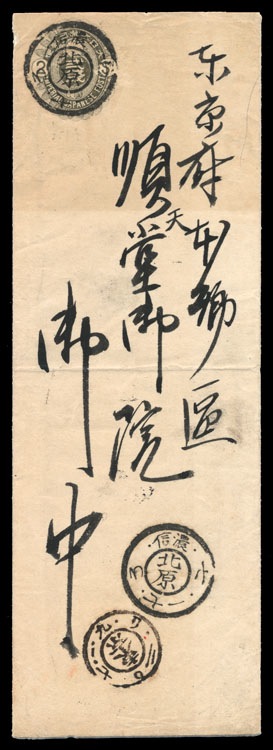 东京府本郷區
順天堂御院
御中
信濃
北原
信濃
北原
JAPANESE POST